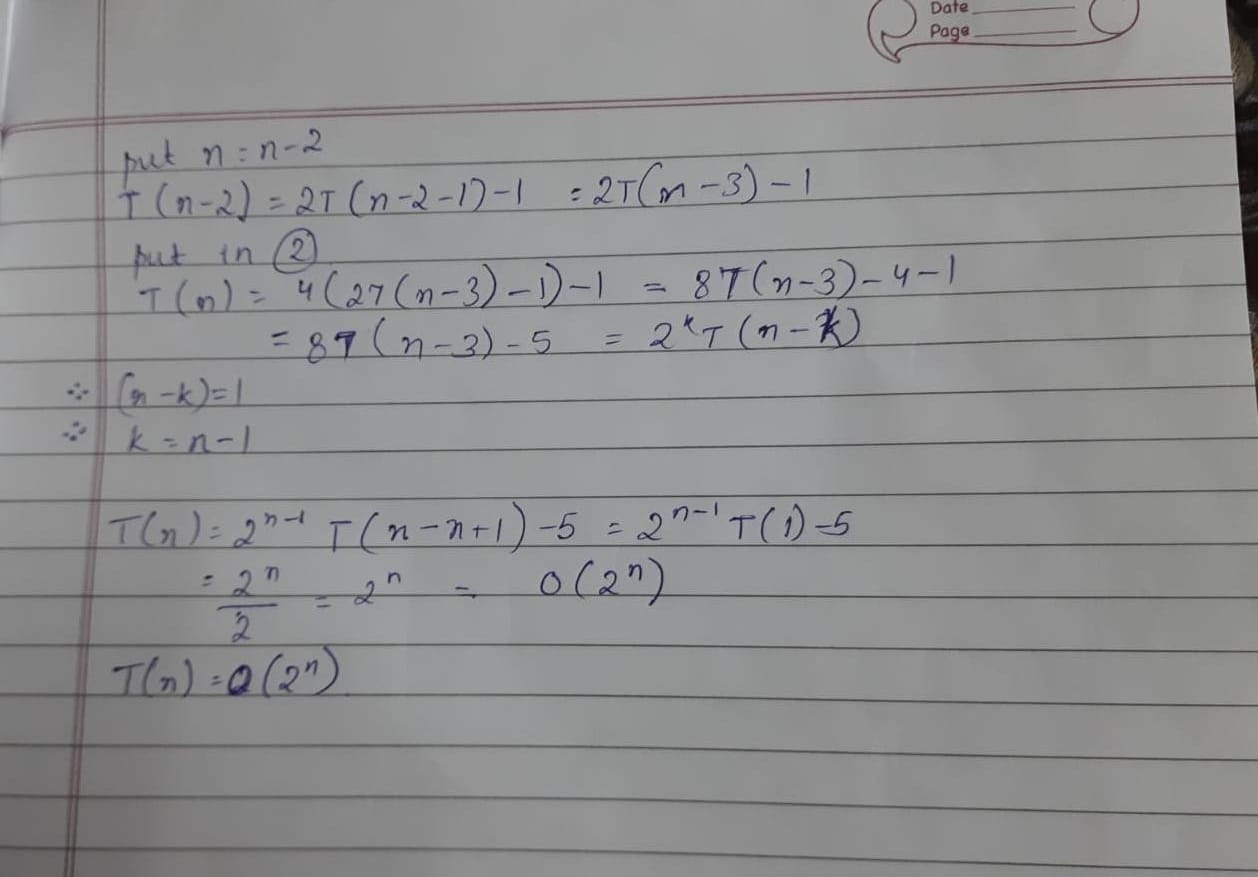 Date
Page
put n = n-2
T(n-2) = 2T(n-2-1)-1 = 2T(n-3)-1
put in ②
T(n) = 4(2T(n-3)-1)-1 = 8T(n-3)-4-1
= 8T(n-3)-5 = 2ᵏT(n-k)
∴ (n-k)=1
∴ k = n-1
T(n) = 2ⁿ⁻¹ T(n-n+1)-5 = 2ⁿ⁻¹ T(1)-5
= 2ⁿ/2 = 2ⁿ = O(2ⁿ)
T(n) = O(2ⁿ)